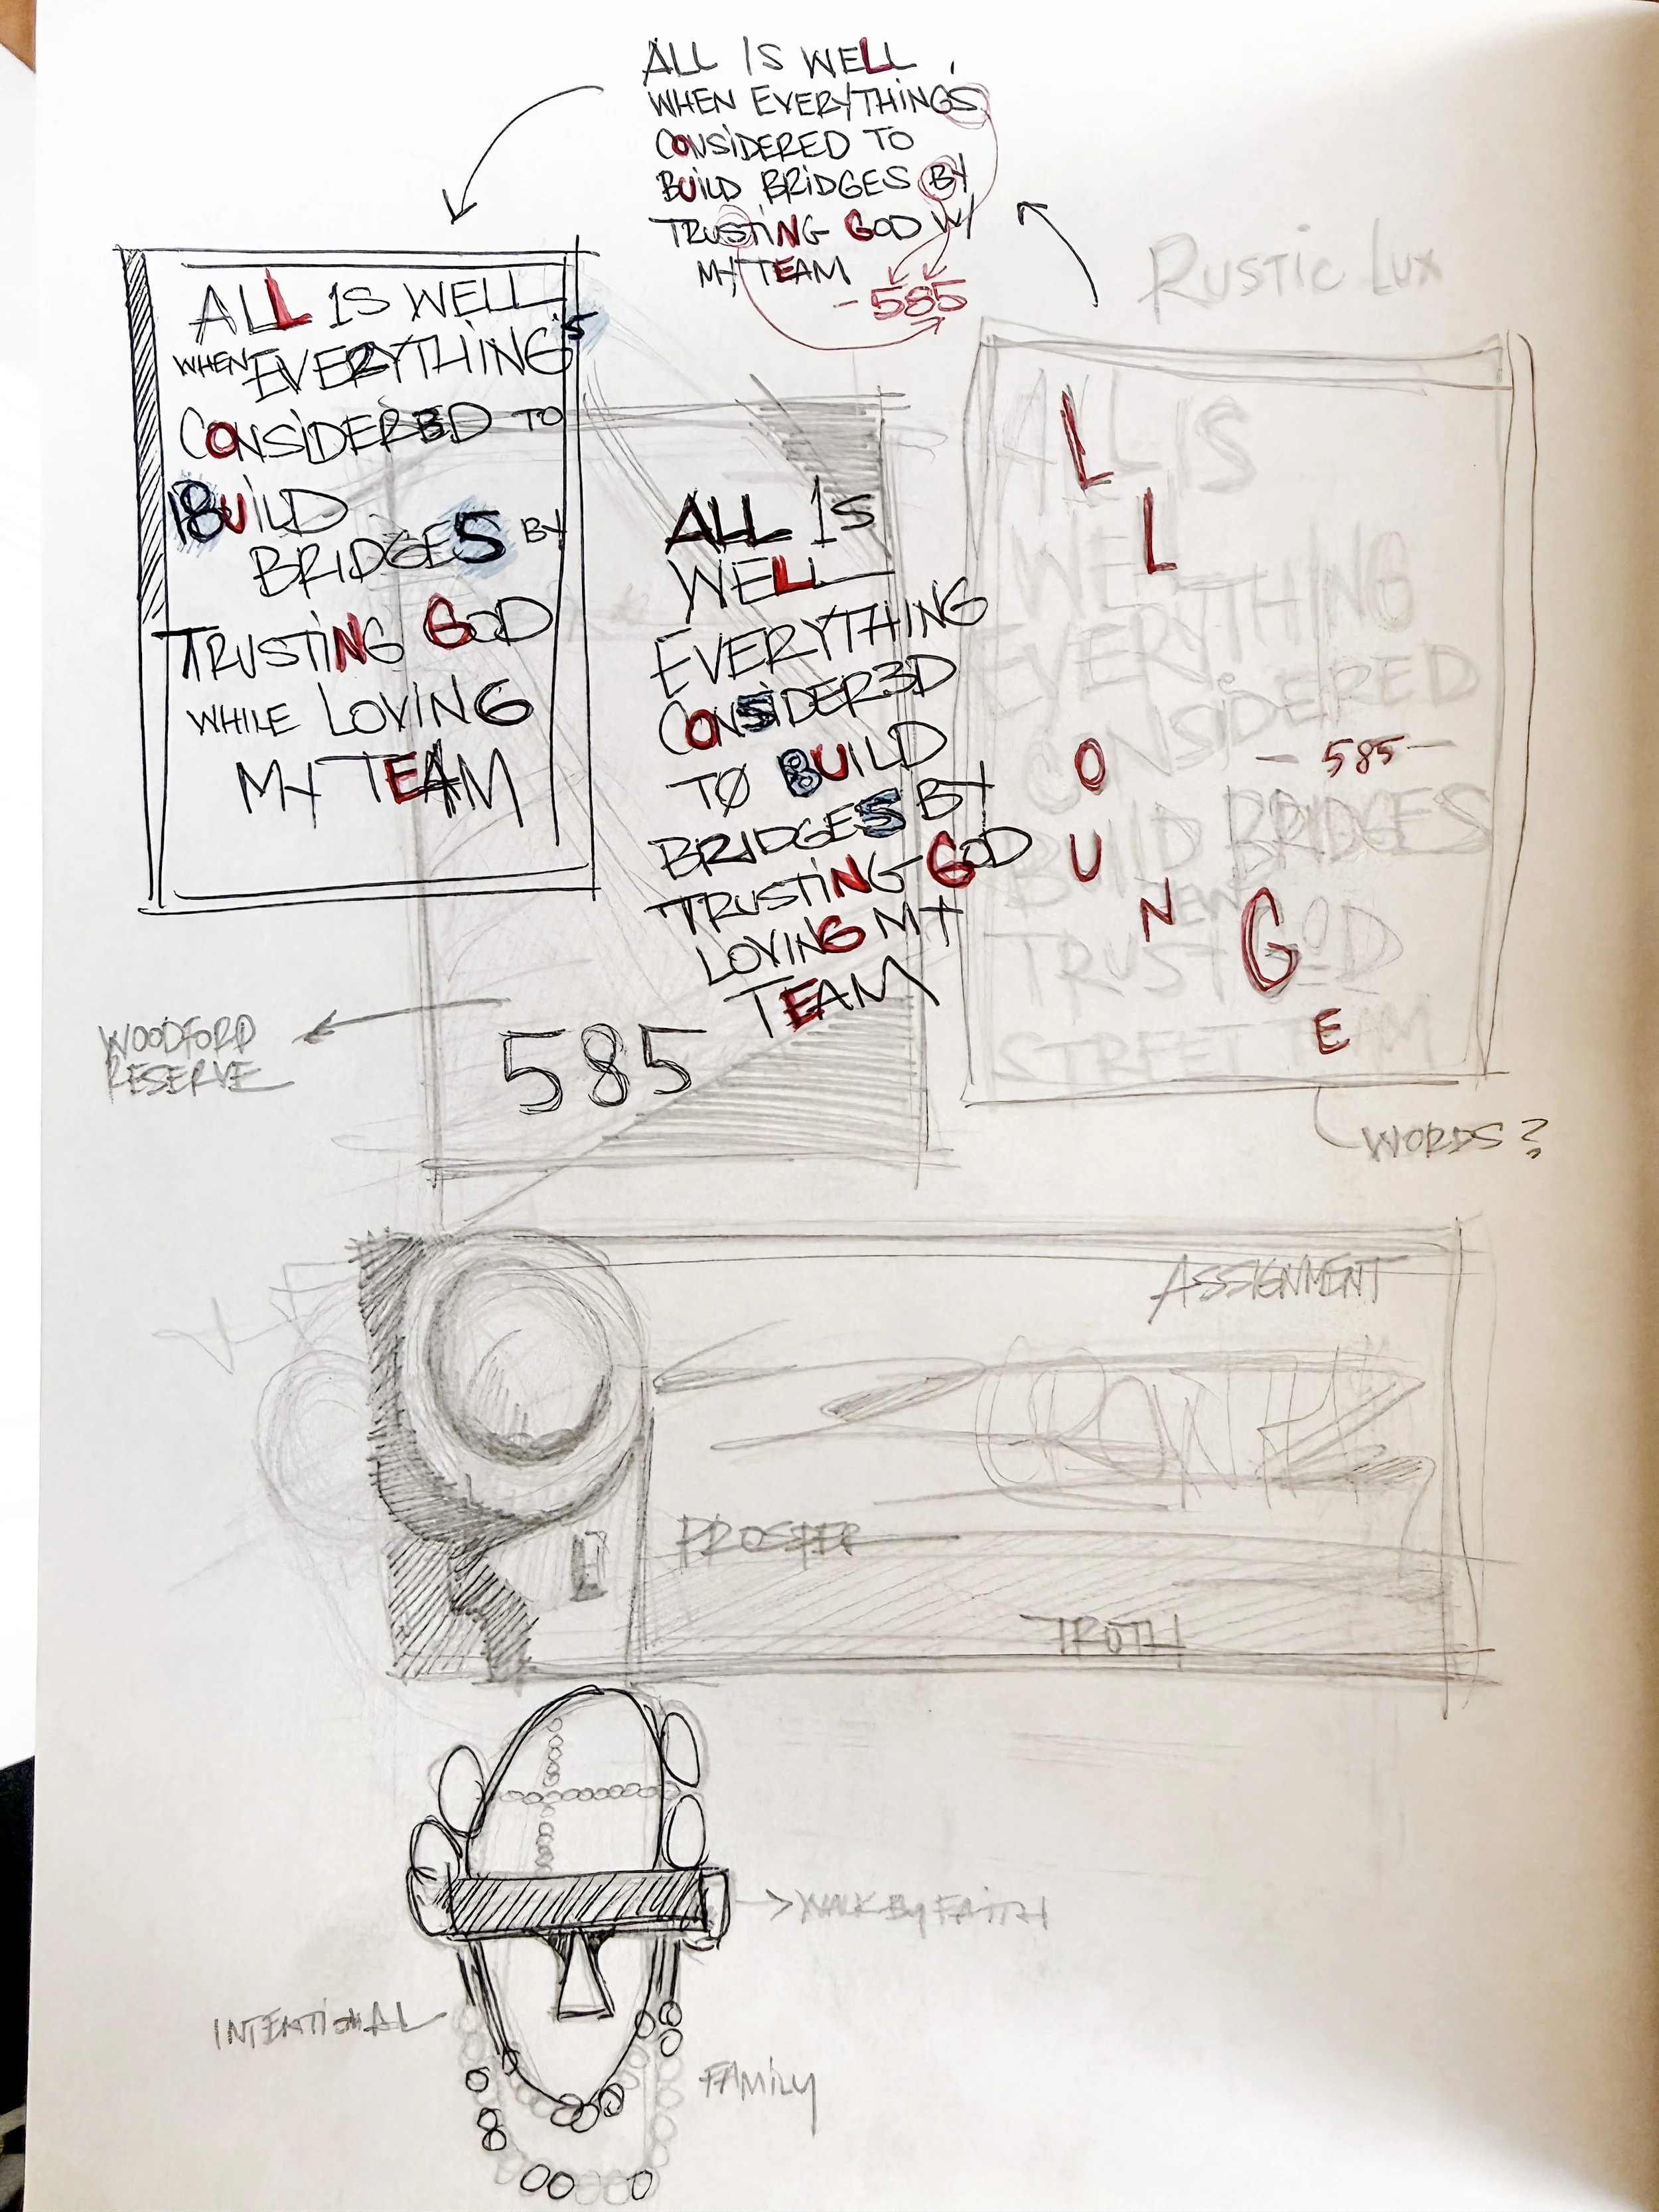 ALL IS WELL,
WHEN EVERYTHINGS
CONSIDERED TO
BUILD BRIDGES BY
TRUSTING GOD W/
MY TEAM
-585
RUSTIC LUX
ALL 1S WELL
WHEN EVERYTHING'S
CONSIDERED TO
BUILD
BRIDGES BY
TRUSTING GOD
WHILE LOVING
MY TEAM
ALL 1S
WELL
EVERYTHING
CONSIDER3D
TØ BUILD
BRIDGES BY
TRUSTING GOD
LOVING MY
TEAM
585
ALL IS
WELL
EVERYTHING
CONSIDERED
- 585 -
BUILD BRIDGES
TRUST GOD
STREET TEAM
L
L
O
U
N
G
E
WORDS?
WOODFORD
RESERVE
ASSIGNMENT
PROSPER
TROTH
WALK BY FAITH
INTENTIONAL
FAMILY